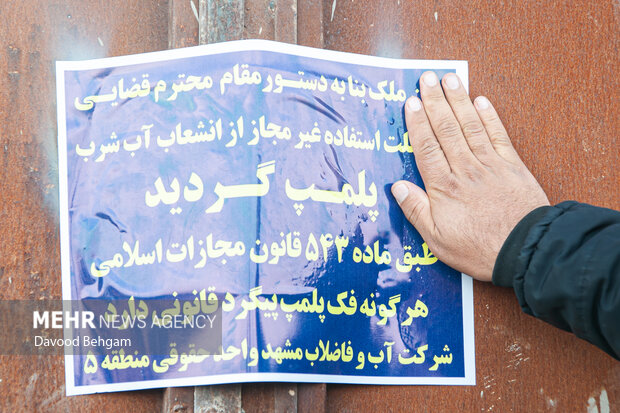 ملک بنا به دستور مقام محترم قضایی
استفاده غیر مجاز از انشعاب آب شرب
پلمپ گردید
طبق ماده ۵۴۳ قانون مجازات اسلامی
هرگونه فک پلمپ پیگرد قانونی دارد
شرکت آب و فاضلاب مشهد واحد حقوقی منطقه ۵
MEHR NEWS AGENCY
Davood Behgam